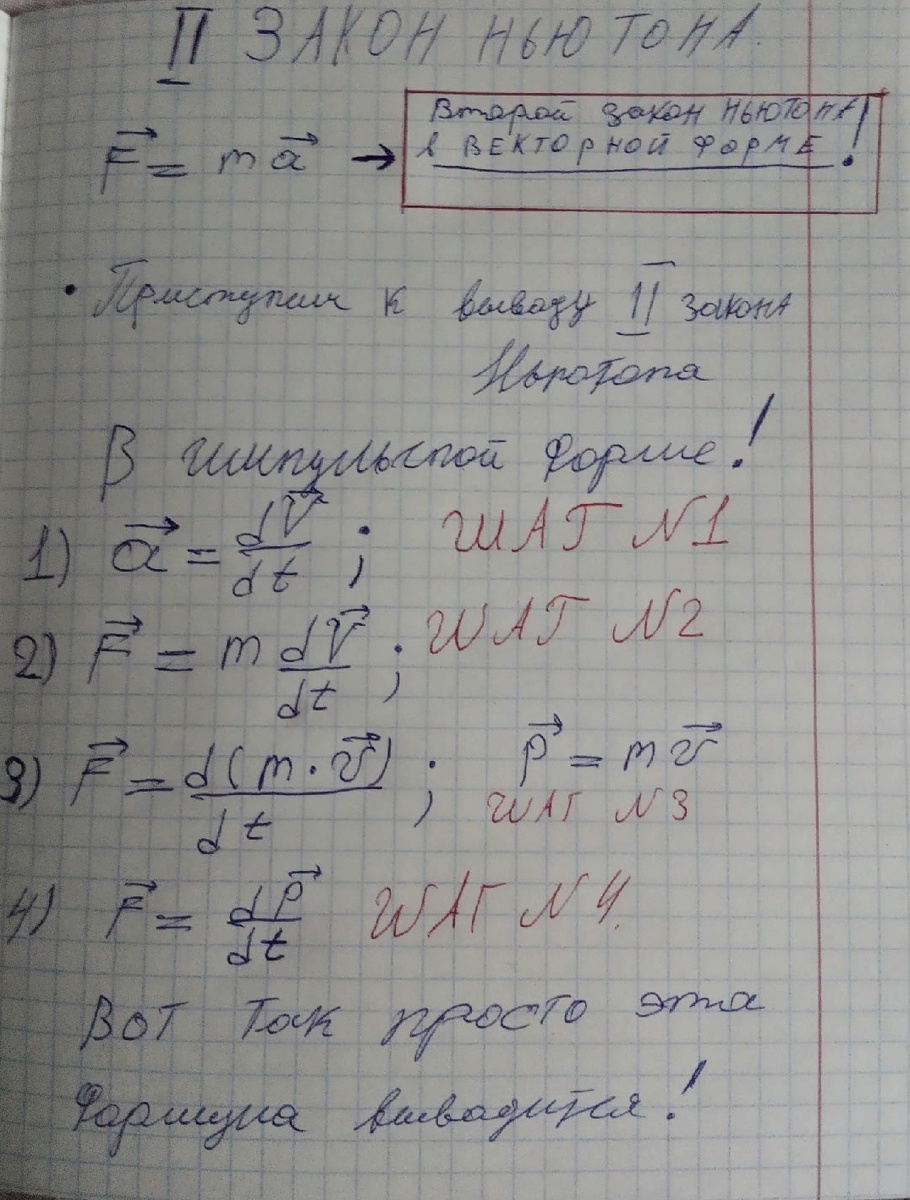 II ЗАКОН НЬЮТОНА.
Второй закон НЬЮТОНА
в ВЕКТОРНОЙ ФОРМЕ!
F⃗ = m a⃗ →
• Приступим к выводу II закона
Ньютона
В импульсной форме!
1) a⃗ = dV⃗/dt ; ШАГ N1
2) F⃗ = m dV⃗/dt ; ШАГ N2
3) F⃗ = d(m·v⃗)/dt ; p⃗ = m v⃗
ШАГ N3
4) F⃗ = dp⃗/dt ШАГ N4.
Вот так просто эта
Формула выводится!